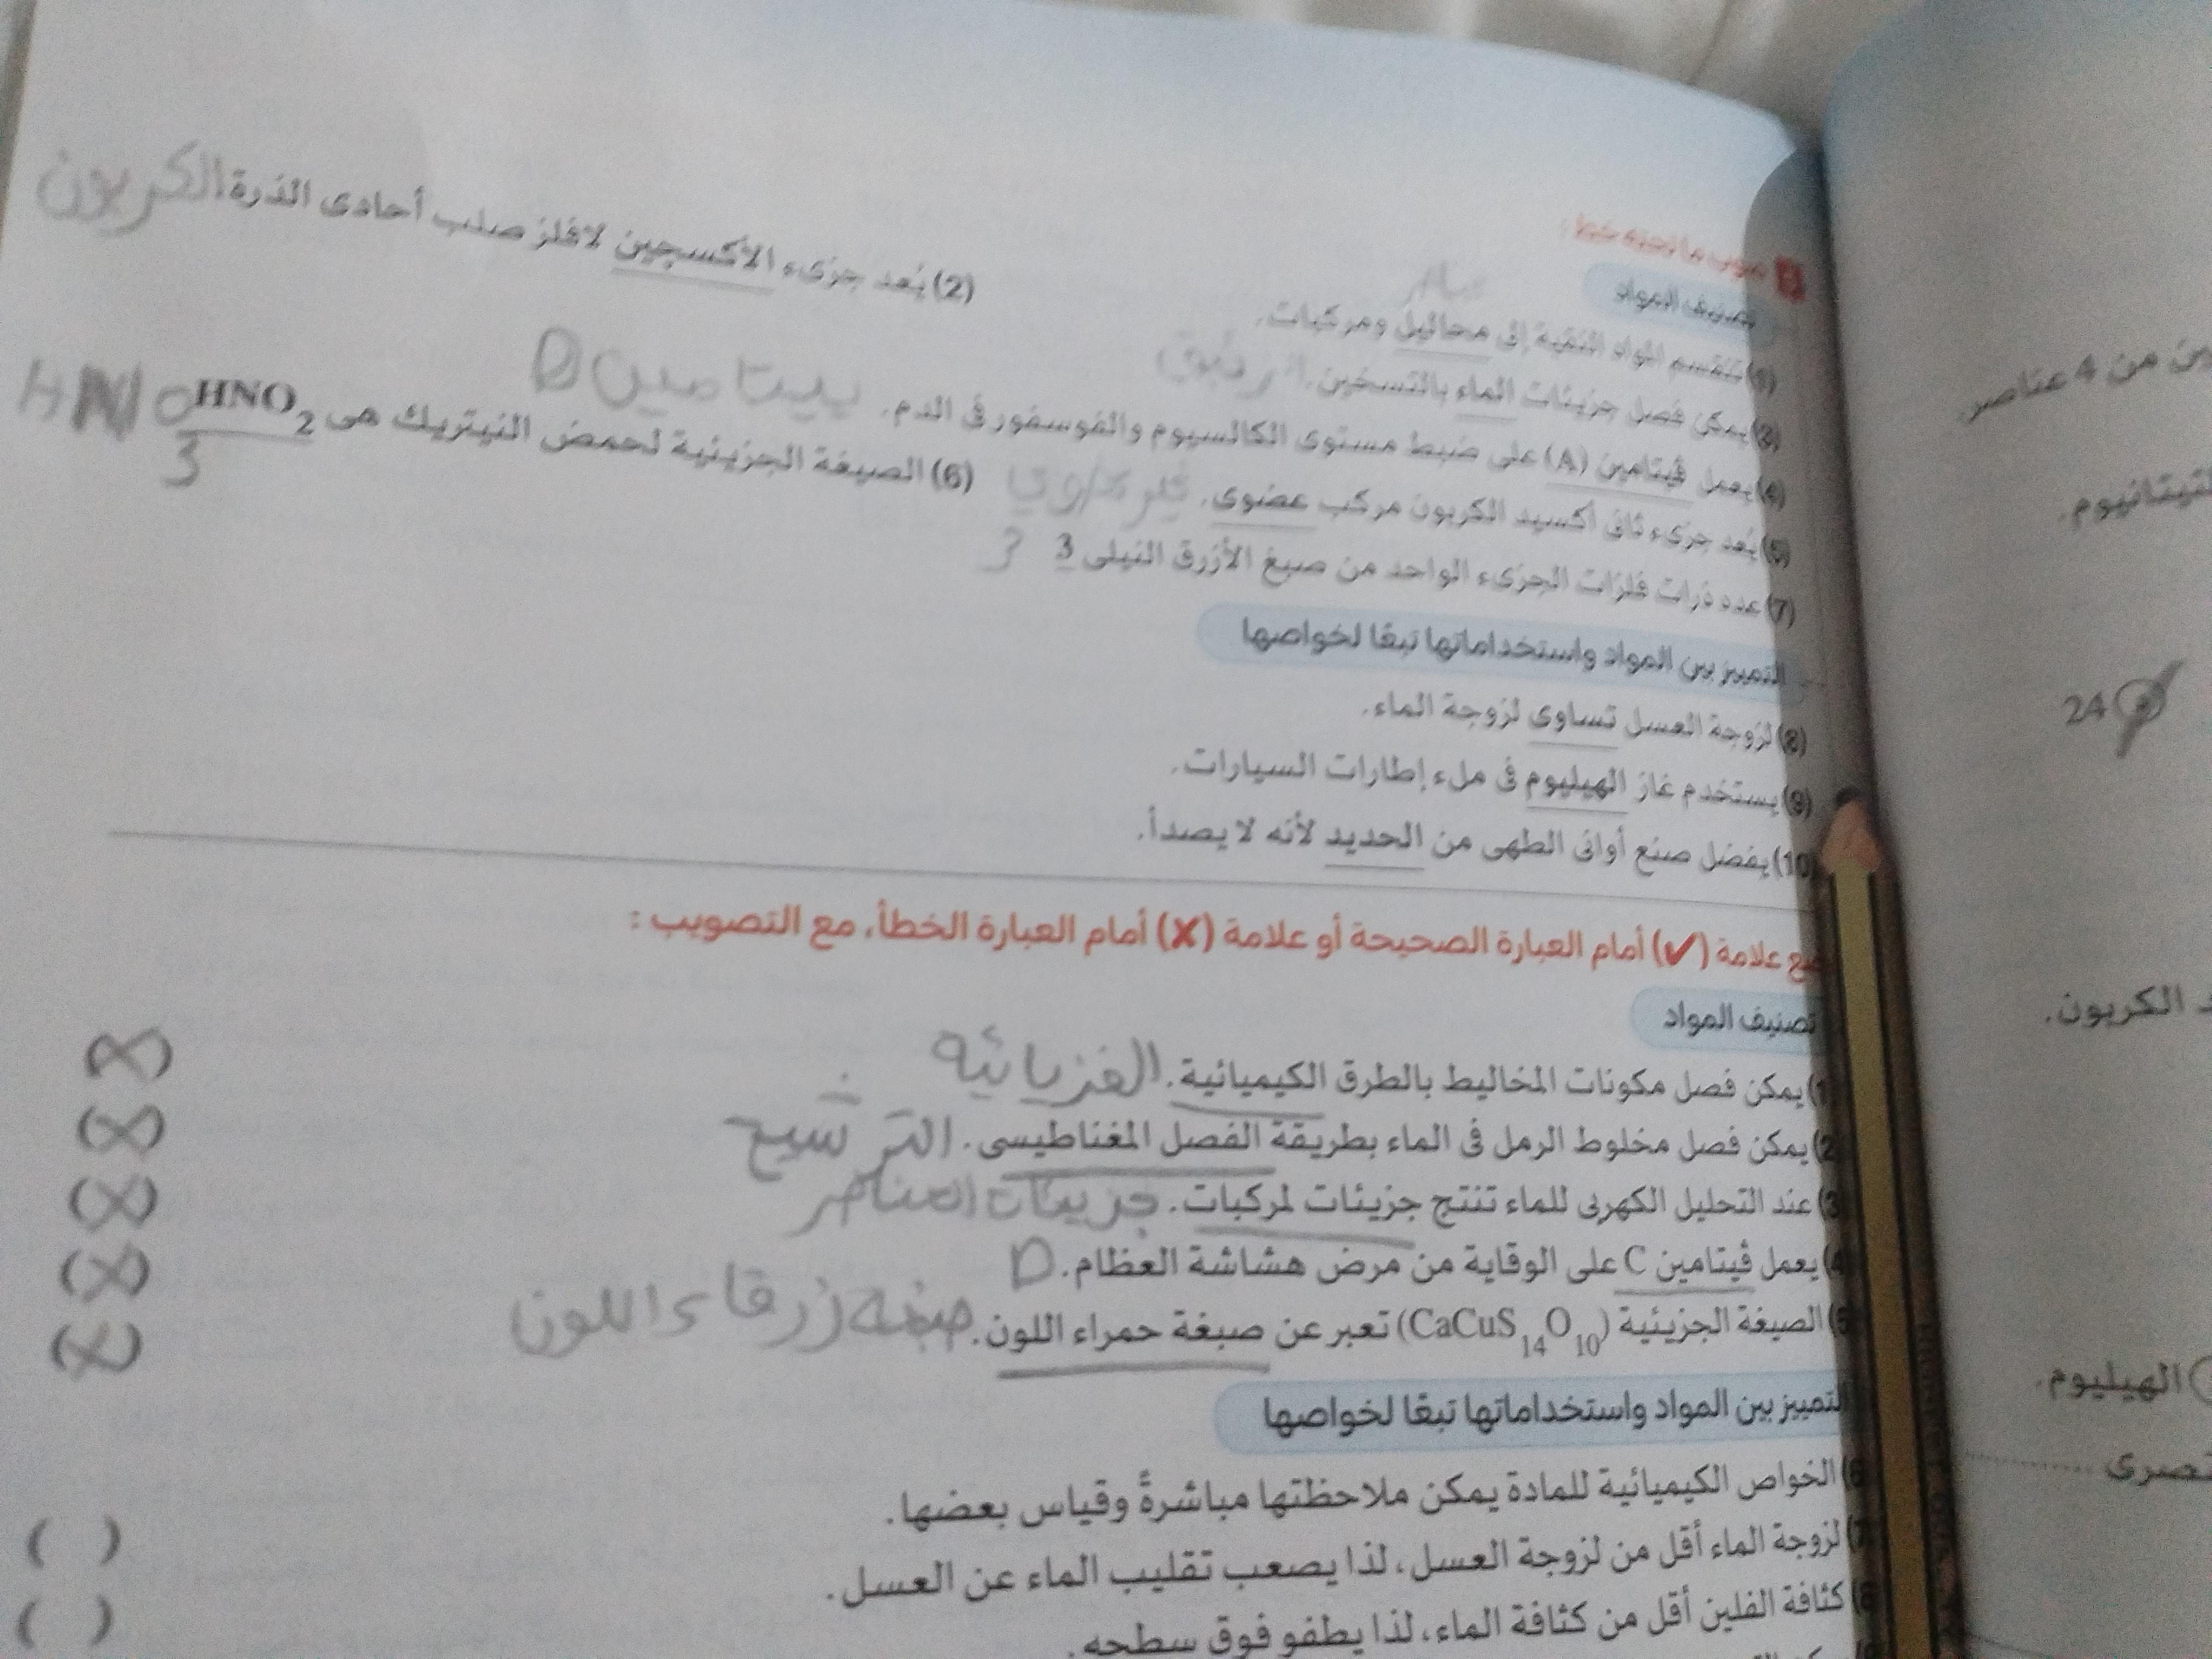 صوب ما تحته خط :
تصنيف المواد
(1) تنقسم المواد النقية إلى محاليل ومركبات.
(2) يُعد جزىء الأكسجين لافلز صلب أحادى الذرة الكربون
(3) يمكن فصل جزيئات الماء بالتسخين. الزئبق
(4) يعمل ڤيتامين (A) على ضبط مستوى الكالسيوم والفوسفور فى الدم. D
(5) يُعد جزىء ثانى أكسيد الكربون مركب عضوى.
(6) الصيغة الجزيئية لحمض النيتريك هى HNO2 HNO3
(7) عدد ذرات فلزات الجزىء الواحد من صبغ الأزرق النيلى 3
التمييز بين المواد واستخداماتها تبعًا لخواصها
(8) لزوجة العسل تساوى لزوجة الماء.
(9) يستخدم غاز الهيليوم فى ملء إطارات السيارات.
(10) يفضل صنع أوانى الطهى من الحديد لأنه لا يصدأ.
ضع علامة (✓) أمام العبارة الصحيحة أو علامة (✗) أمام العبارة الخطأ، مع التصويب :
تصنيف المواد
(1) يمكن فصل مكونات المخاليط بالطرق الكيميائية. الفزيائيه (X)
(2) يمكن فصل مخلوط الرمل فى الماء بطريقة الفصل المغناطيسى. الترشيح (X)
(3) عند التحليل الكهربى للماء تنتج جزيئات لمركبات. جزيئات العناصر (X)
(4) يعمل ڤيتامين C على الوقاية من مرض هشاشة العظام. D (X)
(5) الصيغة الجزيئية (CaCuS14O10) تعبر عن صبغة حمراء اللون. صبغه زرقاء اللون (X)
التمييز بين المواد واستخداماتها تبعًا لخواصها
(6) الخواص الكيميائية للمادة يمكن ملاحظتها مباشرةً وقياس بعضها. ( )
(7) لزوجة الماء أقل من لزوجة العسل، لذا يصعب تقليب الماء عن العسل. ( )
(8) كثافة الفلين أقل من كثافة الماء، لذا يطفو فوق سطحه.
من 4 عناصر.
24
الكربون.
الهيليوم.